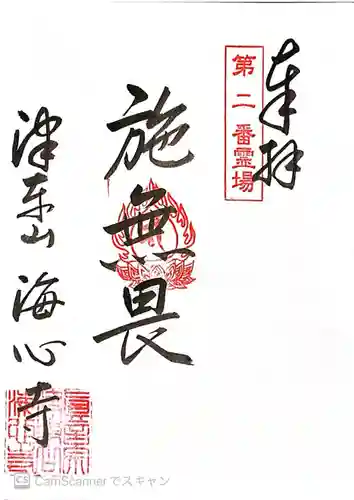 奉拝
第二番霊場
施無畏
津東山 海心寺
CS CamScannerでスキャン